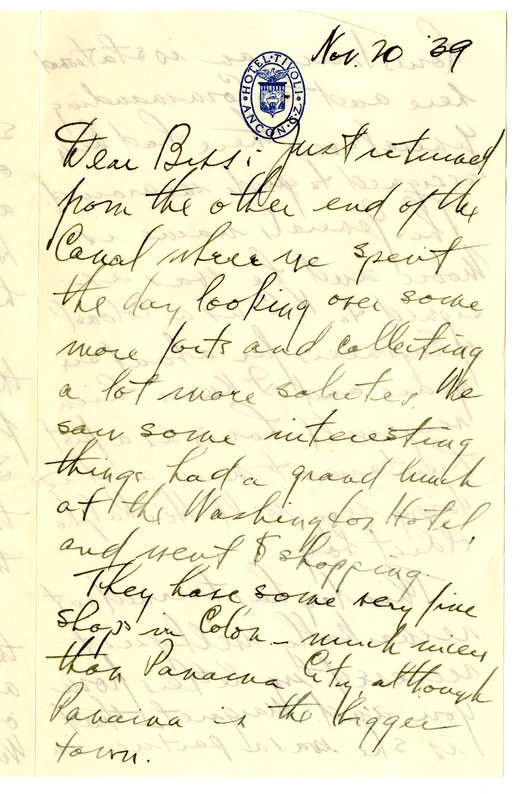 Nov. 20 '39
HOTEL · TIVOLI
ANCON · C.Z.
Dear Bess: Just returned
from the other end of the
Canal where we spent
the day looking over some
more forts and collecting
a lot more salutes. We
saw some interesting
things had a grand lunch
at the Washington Hotel,
and went shopping.
They have some very fine
shops in Colon - much nicer
than Panama City, although
Panama is the bigger
town.